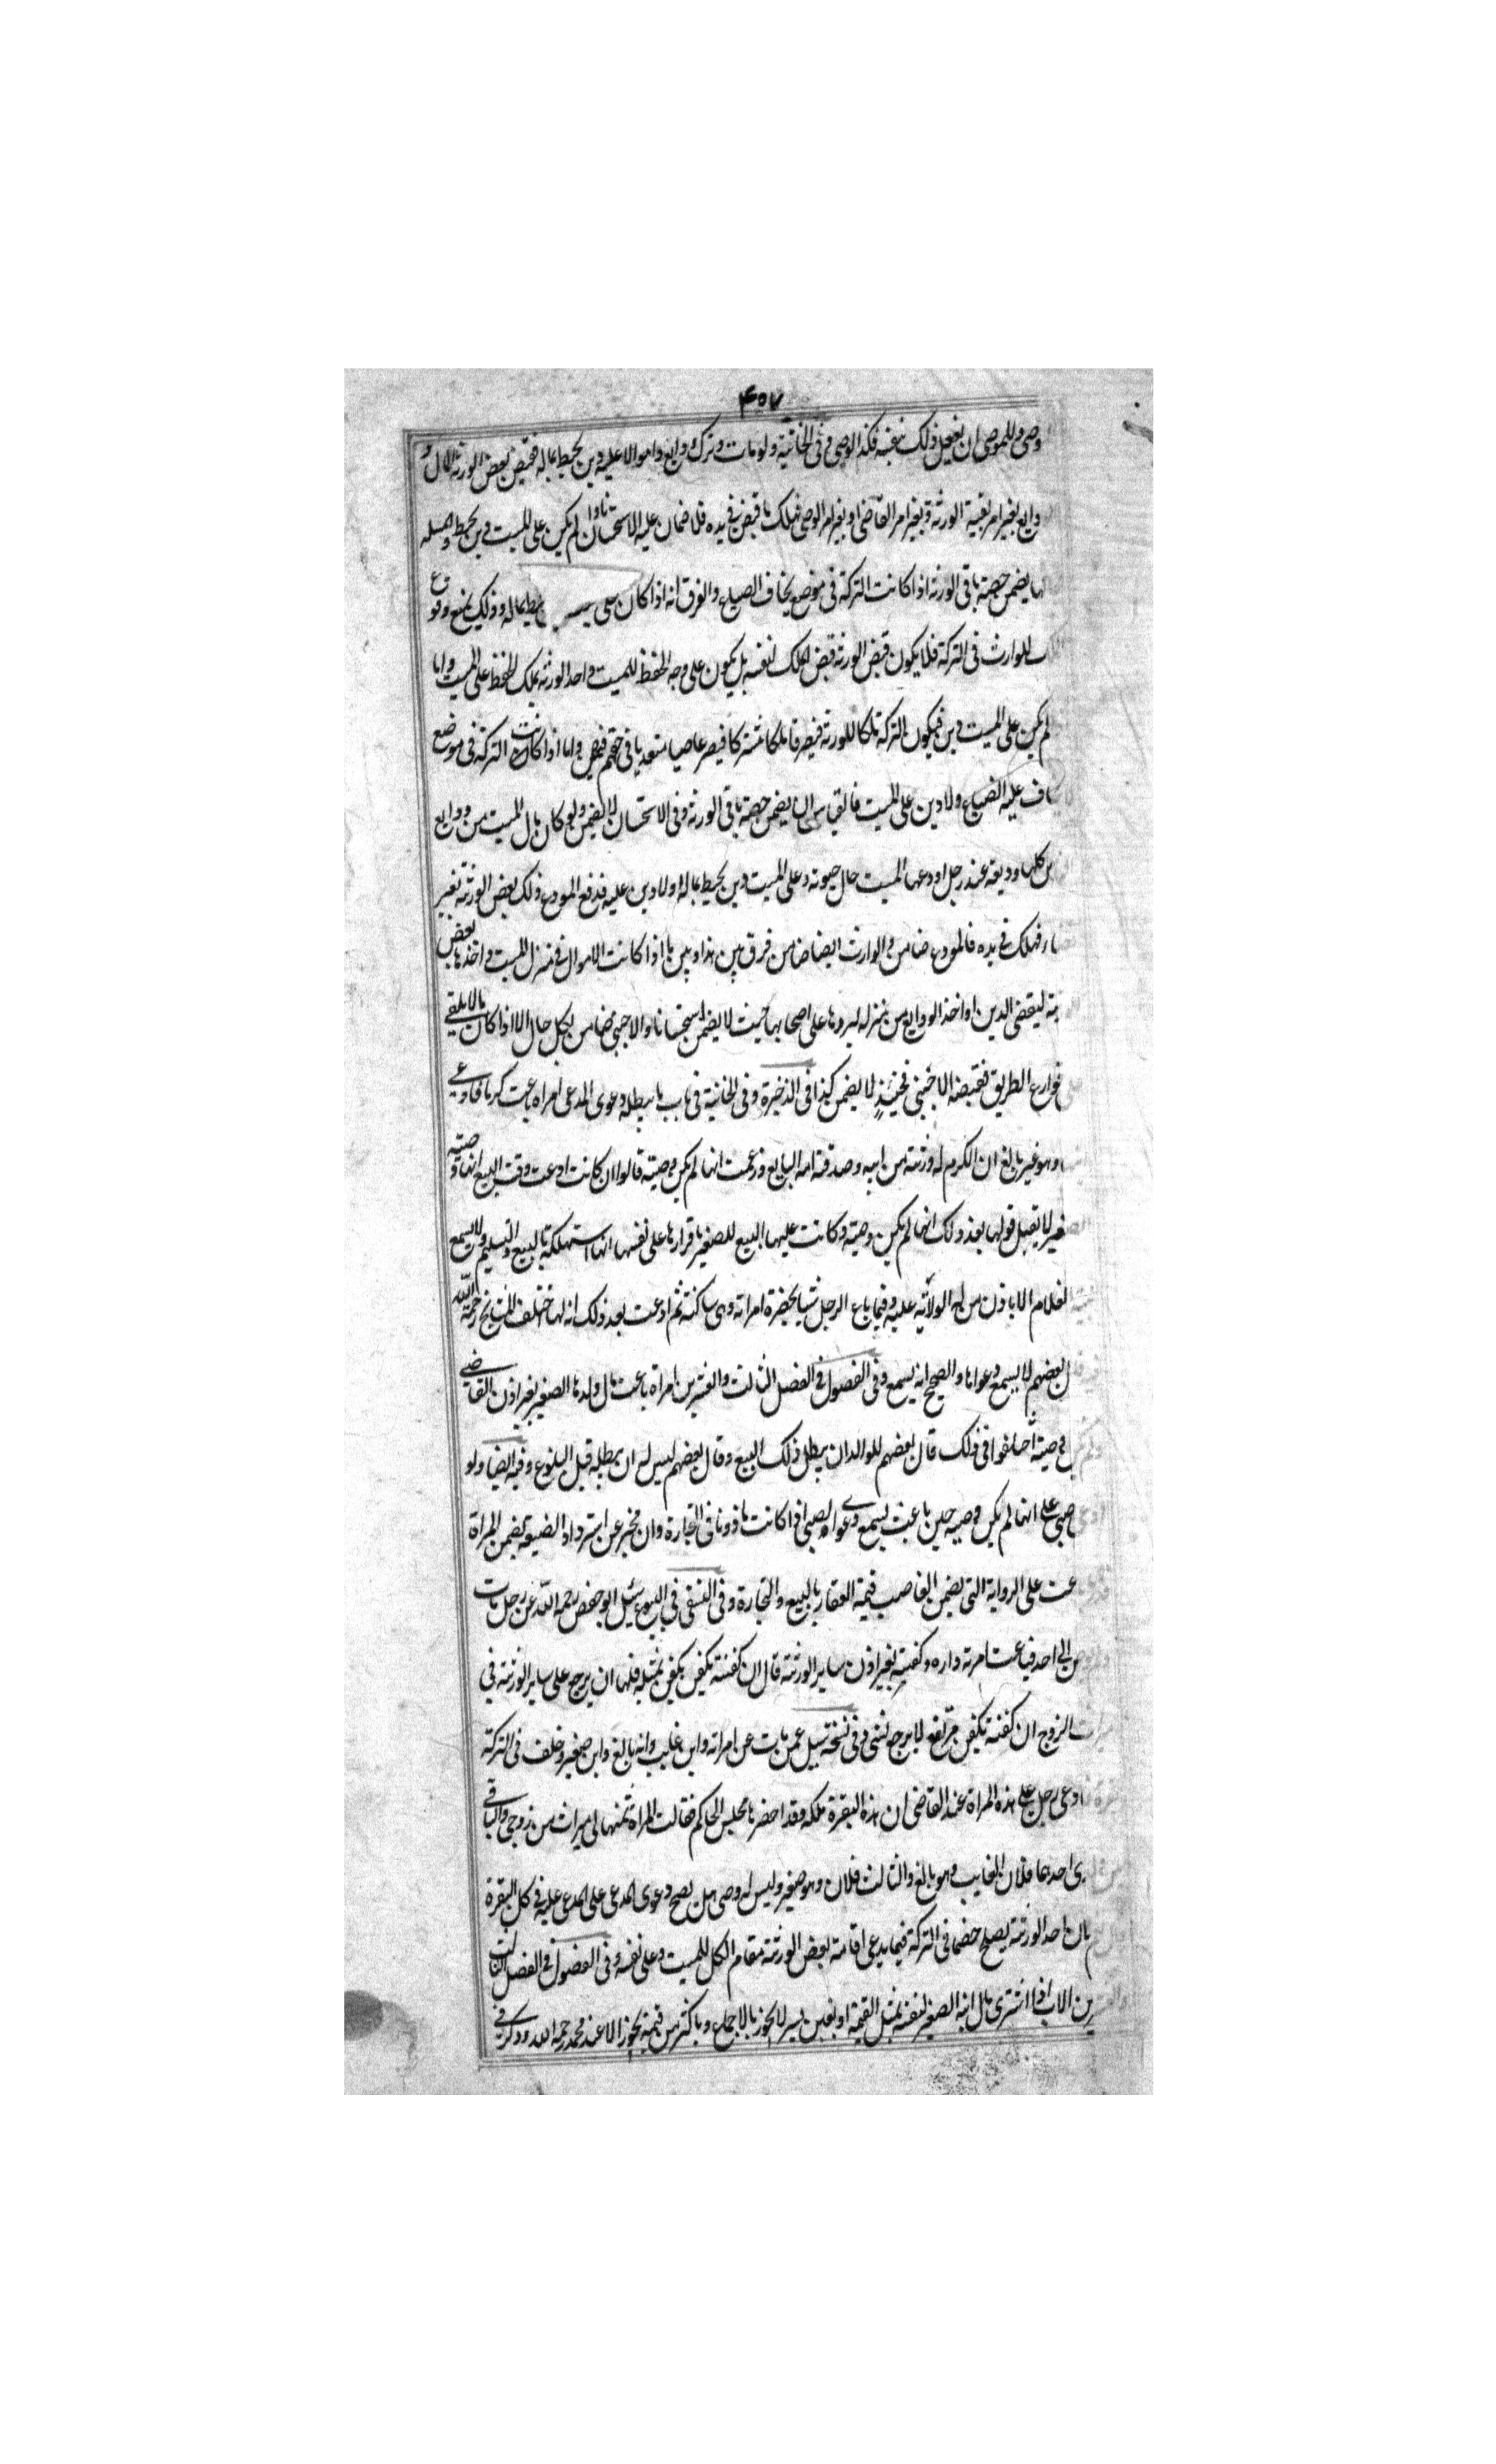 ۴۵۷
وصى وللموصى ان يفعل ذلك بنفسه فكذا الوصى وفى الخانية ولو مات وترك ودايع واموالا عليه دين يحيط بماله فقبض بعض الورثة المال و
دايع بغير امر بقية الورثة وبغير امر القاضى او بغير امر الوصى فهلك ما قبض فى يده فلا ضمان عليه الا استحسانا وان لم يكن على الميت دين يحيط والمسئلة
انما يضمن حصة باقى الورثة اذا كانت التركة فى موضع يخاف الضياع والفرق انه اذا كان على يحيط بماله وذلك يمنع وقوع
للوارث فى التركة فلا يكون قبض الورثة قبض الملك لنفسه بل يكون على وجه الحفظ للميت واحد الورثة يملك الحفظ على الميت واما
لم يكن على الميت دين فيكون التركة ملكا للورثة فيصير ملكا مشتركا فيصير عاصيا متعديا فى حقهم فيضمن واما اذا كانت التركة فى موضع
يخاف عليه الضياع ولا دين على الميت فالقياس ان يضمن حصة باقى الورثة وفى الاستحسان لا يضمن ولو كان مال الميت من ودايع
كلها وديعة عند رجل اودعها الميت حال حيوته وعلى الميت دين يحيط بماله او لا دين عليه فدفع المودع ذلك بعض الورثة بغير
فهلك فى يده فالمودع ضامن والوارث ايضا ضامن فرق بين هذا وبين ما اذا كانت الاموال فى منزل الميت واخذها بعض
ليقضى الدين او اخذ الودايع من منزله ليردها على اصحابها حيث لا يضمن استحسانا والاجنبى ضامن بكل حال الا اذا كان مالا يلقى
قوارع الطريق فقبضه الاجنبى فحينئذ لا يضمن كذا فى الذخيرة وفى الخانية فى باب ما يبطل دعوى المدعى امراة باعت كرما فادعى
وهو غير بالغ ان الكرم له ورثته من ابيه وصدقته امه البايع وزعمت انها لم يكن وصية قالوا ان كانت ادعت وقت البيع انها وصية
صغير لا يقبل قولها بعد ذلك انها لم يكن وصية وكانت عليها البيع للصغير باقرارها على نفسها انها استهلكته بالبيع والتسليم ولا يسمع
الغلام الا باذن من له الولاية عليه وفيما باع الرجل شيئا بحضرة امراته وهى ساكتة ثم ادعت بعد ذلك انه لها اختلف المشايخ رحمهم الله
قال بعضهم لا يسمع دعواها والصحيح انه يسمع وفى الفصول فى الفصل الثالث والعشرين امراة باعت مال ولدها الصغير بغير اذن القاضى
وصية اختلفوا فى ذلك قال بعضهم للوالد ان يبطل ذلك البيع وقال بعضهم ليس له ان يبطله قبل البلوغ وفيه ايضا ولو
صبى على انها لم يكن وصية حين باعت يسمع دعوى الصبى اذا كانت ماذونا فى التجارة وان عجز عن استرداد الضيعة يضمن المراة
على الرواية التى يضمن الغاصب قيمة العقار بالبيع والتجارة وفى النسفى فى البيوع سئل ابو حفص رحمه الله عن رجل مات
الى احد فباعت امرته داره وكفنته بغير اذن ساير الورثة قال ان كفنته بكفن مثله فلها ان يرجع على ساير الورثة فى
ميراث الزوج ان كفنته بكفن لا يرجع بشى وفى نسخته سئل عمن مات عن امراته وابن غايب وانه بالغ وابن صغير وخلف فى التركة
ادعى رجل على هذه المراة عند القاضى ان هذه البقرة ملكه وقد احضرها مجلس الحاكم فقالت المراة ثمنها لى ميراث من زوجى والباقى
احدهما فلان الغايب وهو بالغ والثالث فلان وهو صغير وليس له وصى هل يصح دعوى المدعى على المدعى عليه فى كل البقرة
بان احد الورثة يصلح خصما فى التركة فيما يدعى اقامة بعض الورثة مقام الكل للميت وعلى نفسه وفى الفصول فى الفصل الثالث
الاب اذا اشترى مال ابنه الصغير لنفسه بمثل القيمة او بغبن يسير لا يجوز بالاجماع وباكثر من قيمة يجوز الا عند محمد رحمه الله وذكر فى